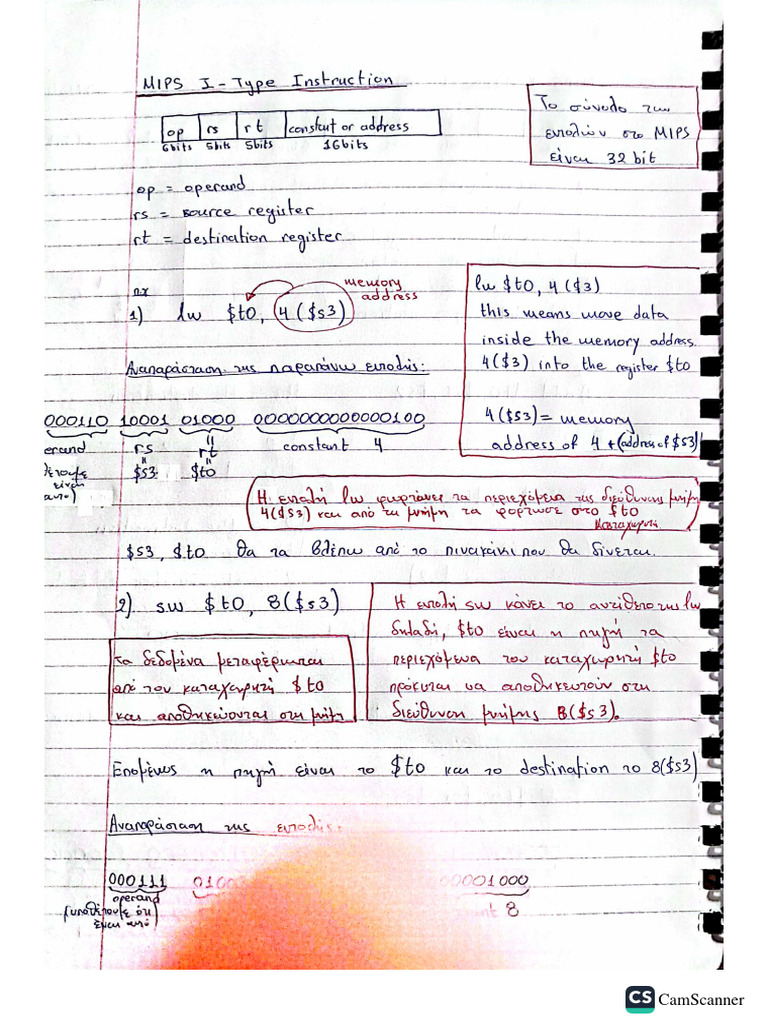 MIPS I-Type Instruction
Το σύνολο των
εντολών στο MIPS
είναι 32 bit
op rs rt constant or address
6bits 5bits 5bits 16bits
op = operand
rs = source register
rt = destination register
πχ
1) lw $t0, 4($s3)
memory
address
lw $t0, 4($3)
this means move data
inside the memory address
4($3) into the register $t0
4($s3) = memory
address of 4 + (address of $s3)
Αναπαράσταση της παραπάνω εντολής:
000110 10001 01000 0000000000000100
erand rs rt constant 4
= $s3 = $t0
είναι
αυτό)
Η εντολή lw φορτώνει τα περιεχόμενα της διεύθυνσης μνήμη
4($s3) και από τη μνήμη τα φόρτωσε στο $t0
καταχωρητή
$s3, $t0 θα τα βλέπω από το πινακάκι που θα δίνεται.
2) sw $t0, 8($s3)
Τα δεδομένα μεταφέρονται
από τον καταχωρητή $t0
και αποθηκεύονται στη μνήμη
Η εντολή sw κάνει το αντίθετο της lw
δηλαδή, $t0 είναι η πηγή τα
περιεχόμενα του καταχωρητή $t0
πρόκειται να αποθηκευτούν στη
διεύθυνση μνήμης 8($s3).
Επομένως η πηγή είναι το $t0 και το destination το 8($s3)
Αναπαράσταση της εντολής:
000111 0100 00001000
operand 8
(υποθέτουμε ότι
είναι αυτό)
CS CamScanner